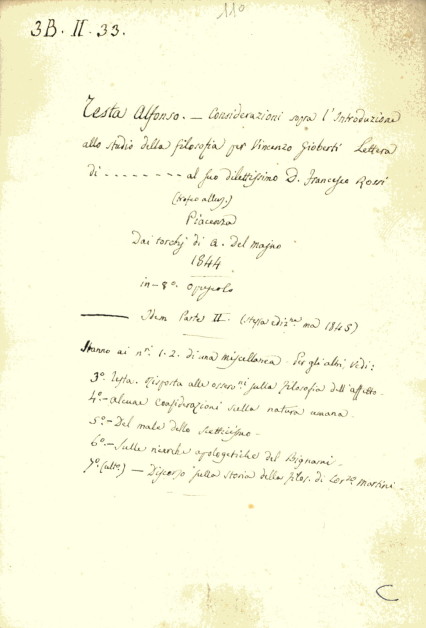 110
3B. II. 33.
Testa Alfonso. — Considerazioni sopra l'Introduzione
allo studio della filosofia per Vincenzo Gioberti Lettera
di - - - - - - - - al suo dilettissimo D. Francesco Rossi
Piacenza
Dai torchj di A. del Majno
1844
in-8º. opuscolo
— Idem Parte II. (stessa ediz.ne ma 1845)
Stanno ai nri. 1. 2. di una miscellanea. Per gli altri, vedi:
3º. Testa. Risposta alle osserv.ni sulla filosofia dell'affetto.
4º. — Alcune considerazioni sulla natura umana.
5º. — Del male dello scetticismo.
6º. — Sulle ricerche apologetiche del Bignami.
7º. — Discorso sulla storia della filos. di Martini.
C